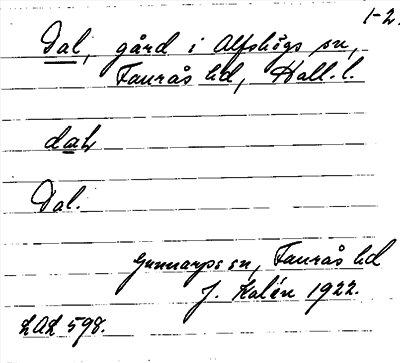 1-2.
Dal, gård i Alfshögs sn,
Faurås hd, Hall. l.
daL
Dal.
Gunnarps sn, Faurås hd
J. Kalén 1922.
LAL 598.